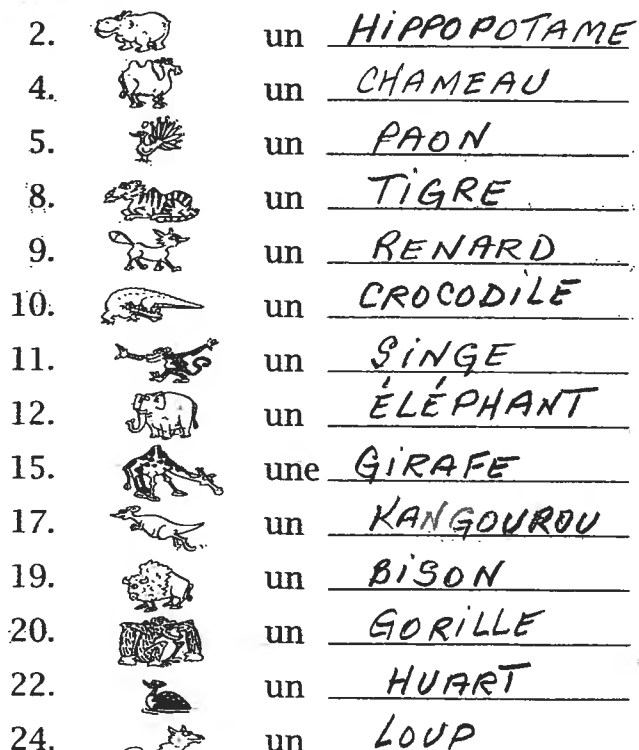 2. un HiPPOPOTAME
4. un CHAMEAU
5. un PAON
8. un TiGRE
9. un RENARD
10. un CROCODiLE
11. un SiNGE
12. un ÉLÉPHANT
15. une GiRAFE
17. un KANGOUROU
19. un BiSON
20. un GORiLLE
22. un HUART
24. un LOUP